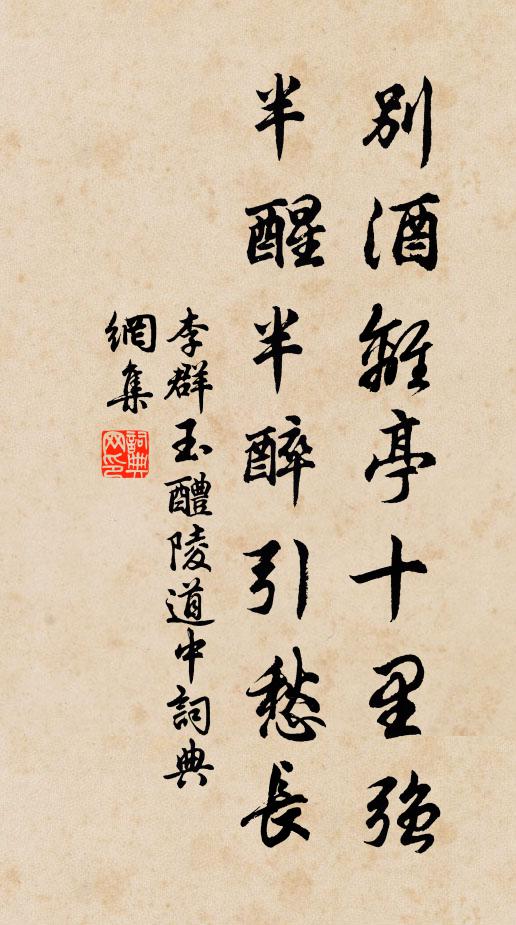 別酒離亭十里強
半醒半醉引愁長
李群玉醴陵道中詞典
網集
詞典网印